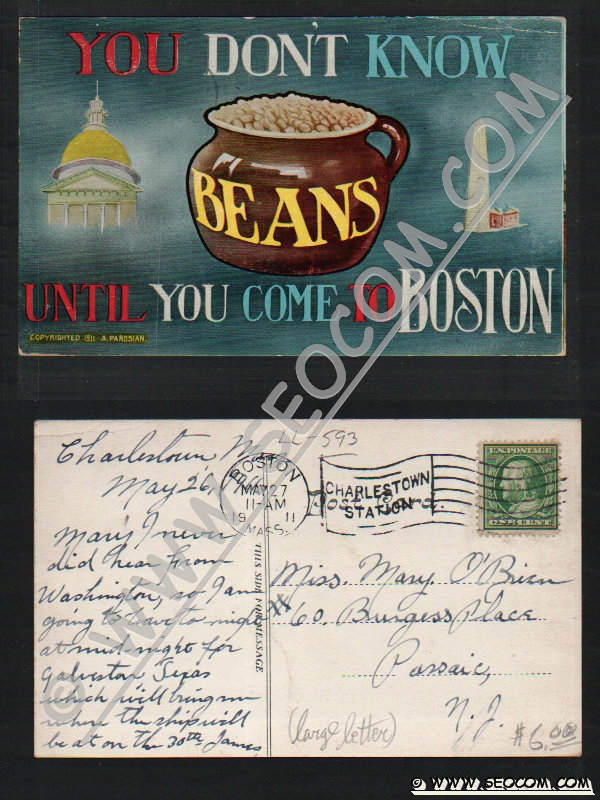 YOU DON'T KNOW
BEANS
UNTIL YOU COME TO BOSTON
COPYRIGHTED 1911 A. PAROSIAN.
© WWW.SEOCOM.COM
LL-593
Charlestown
May 26,
Mary I never
did hear from
Washington, so I am
going to leave to night
at mid night for
Galveston Texas
which will bring me
where the ship will
be at on the 30th James
BOSTON
MAY 27
11-AM
19 11
MASS.
CHARLESTOWN
STATION
U.S. POSTAGE
ONE CENT
THIS SIDE FOR MESSAGE
Miss. Mary O'Brien
60 Burgess Place
Passaic,
N.J.
(large letter)
$6.00
© WWW.SEOCOM.COM